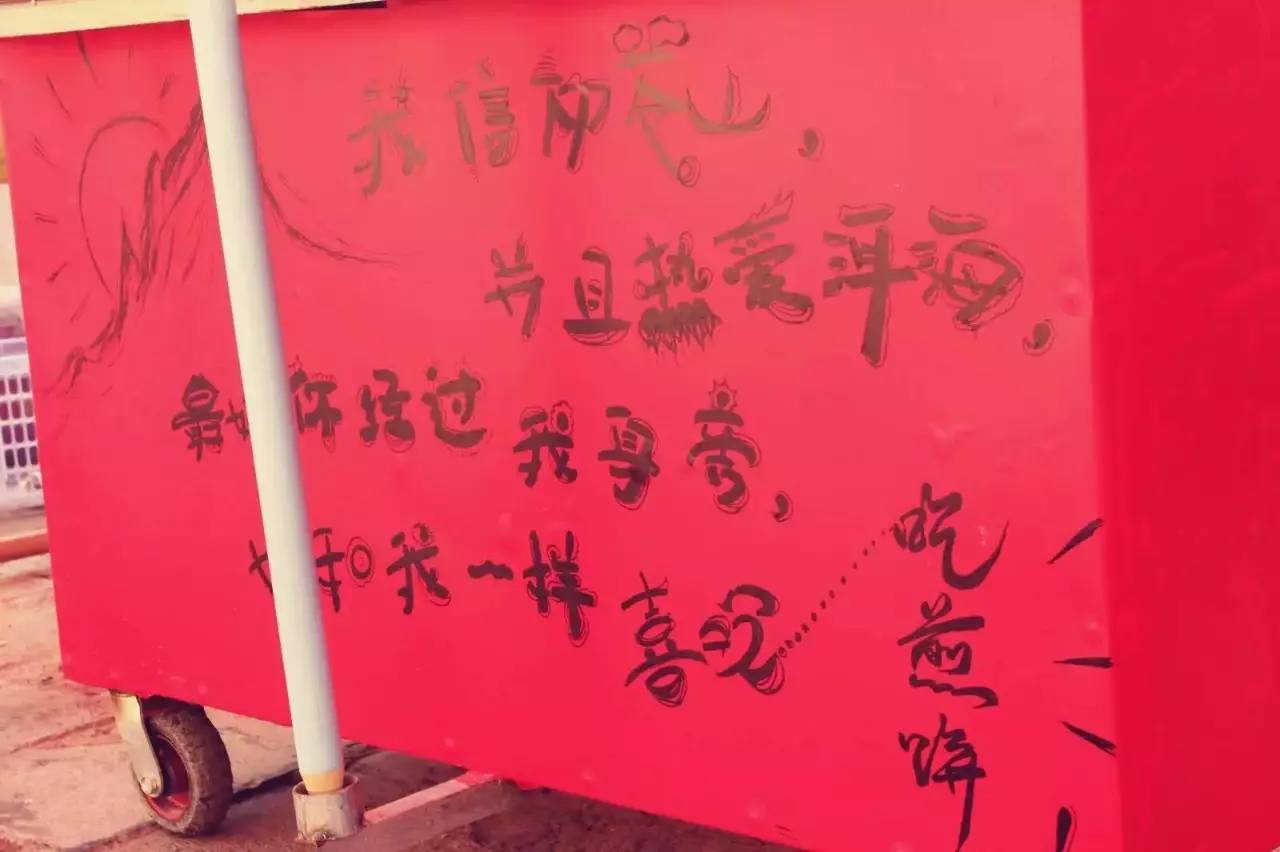 我信仰苍山,
并且热爱洱海,
最好你经过我身旁,
如和我一样喜欢
吃煎饼!